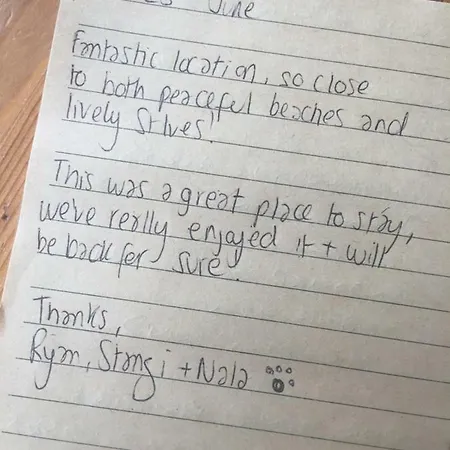 June
Fantastic location, so close
to both peaceful beaches and
lively St Ives!
This was a great place to stay,
we've really enjoyed it + will
be back for sure.
Thanks,
Ryan, Stangi + Nala